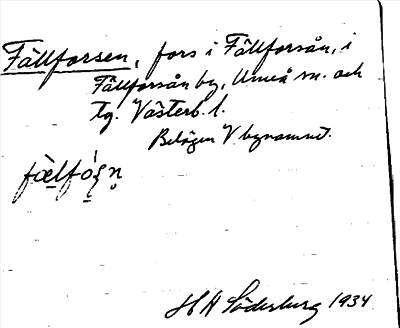 Fällforsen, fors i Fällforsån, i
Fällforsån by, Umeå sn. och
tg. Västerb. l.
Belägen V bynamnet.
H A Söderburg 1934